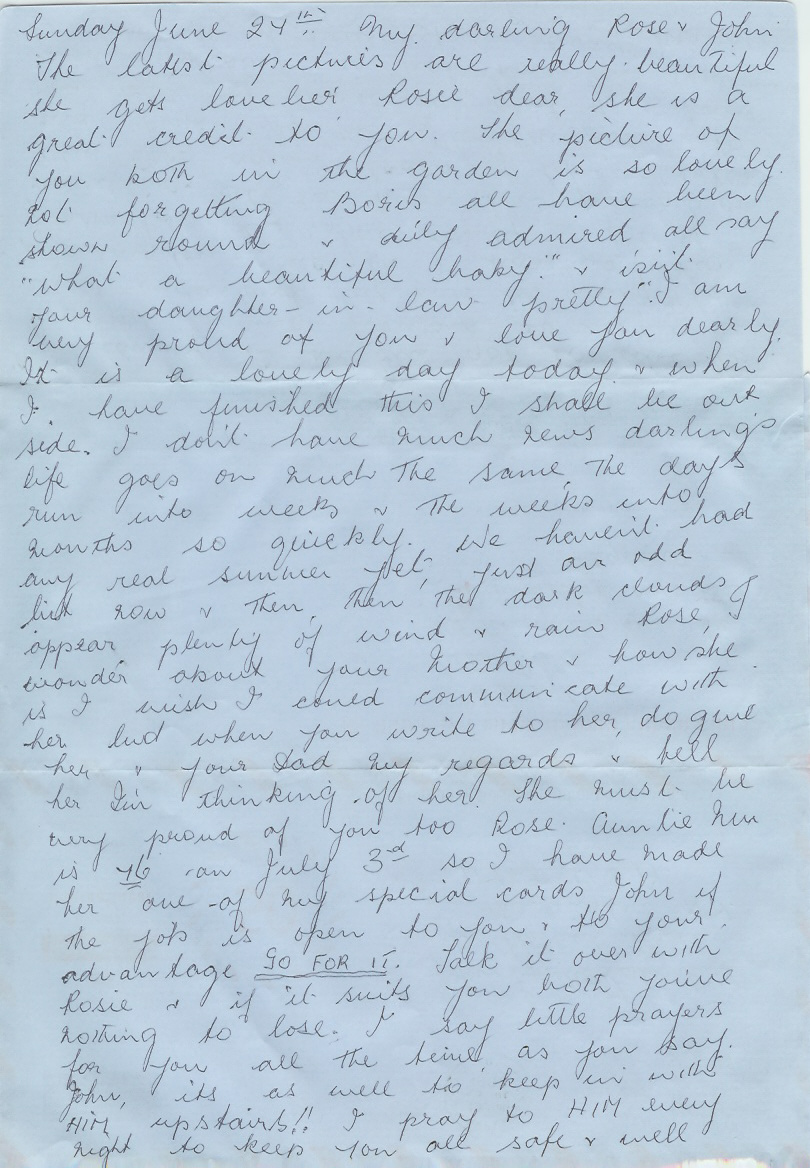 Sunday June 24th. My darling Rose & John
The latest pictures are really beautiful
she gets lovelier Rosie dear, she is a
great credit to you. The picture of
you both in the garden is so lovely.
not forgetting Boris all have been
shown round & duly admired all say
"what a beautiful baby." & isn't
your daughter-in-law pretty". I am
very proud of you & love you dearly.
It is a lovely day today & when
I have finished this I shall be out
side. I don't have much news darlings
life goes on much the same, the days
run into weeks & the weeks into
months so quickly. We haven't had
any real summer yet, just an odd
bit now & then, then the dark clouds
appear plenty of wind & rain Rose, I
wonder about your Mother & how she
is I wish I could communicate with
her but when you write to her, do give
her & your Dad my regards & tell
her I'm thinking of her. She must be
very proud of you too Rose. Auntie
is 76 on July 3rd so I have made
her one of my special cards John if
the job is open to you & to your
advantage GO FOR IT. Talk it over with
Rosie & if it suits you both you've
nothing to lose. I say little prayers
for you all the time, as you say.
John, its as well to keep in with
HIM upstairs!! I pray to HIM every
night to keep you all safe & well